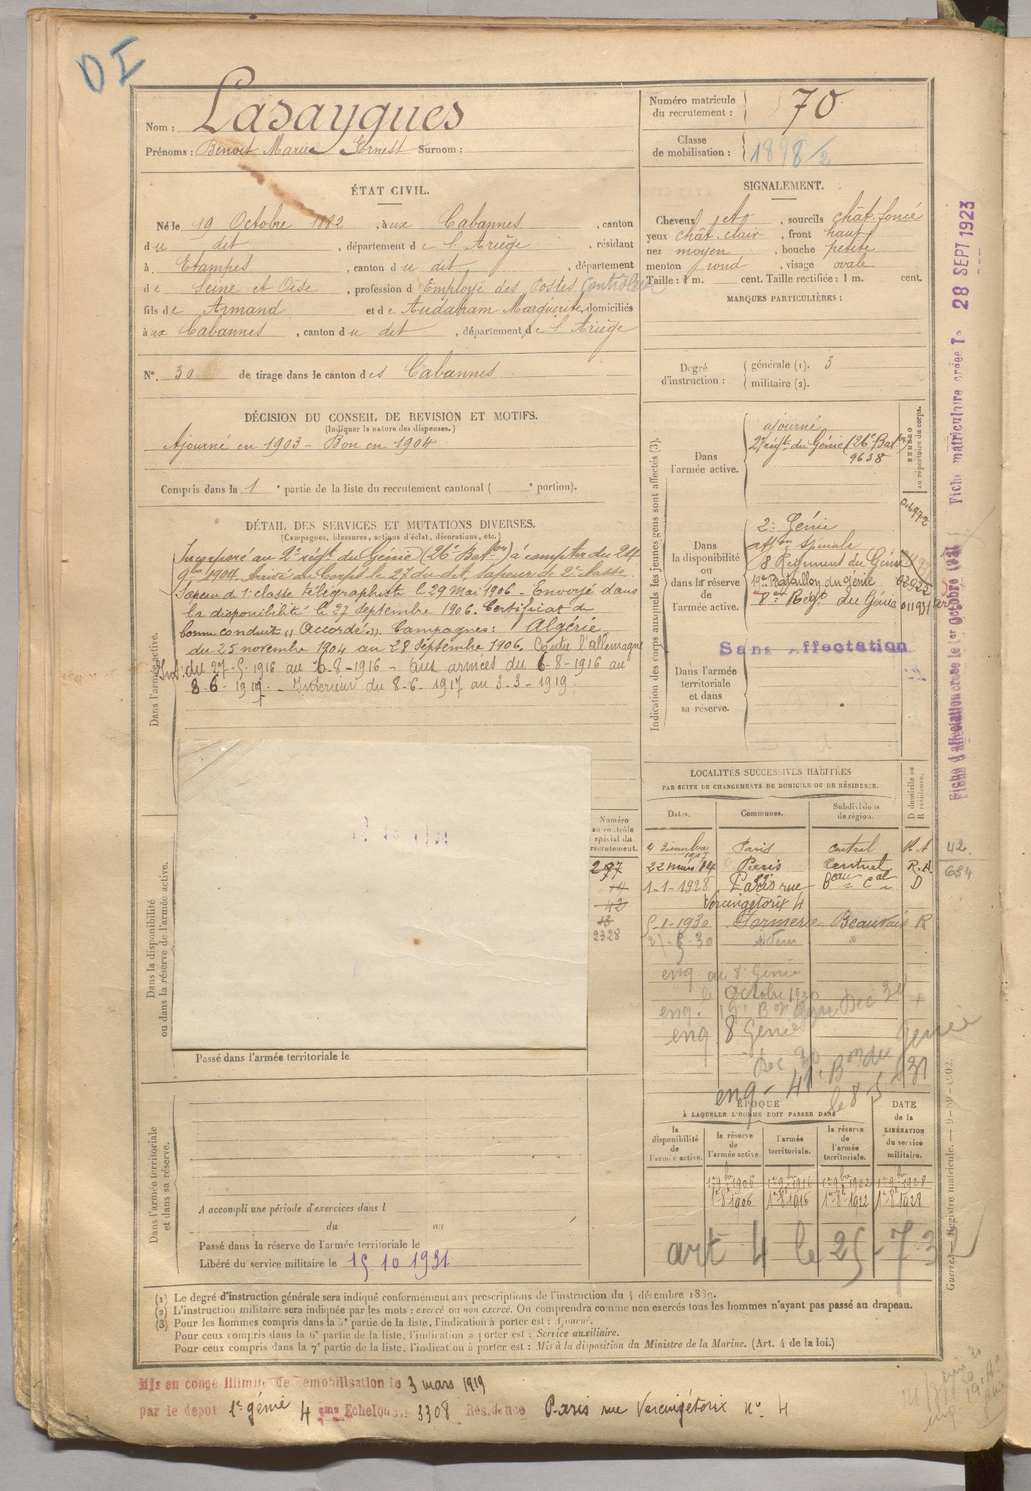 DI
Nom : Lasaygues
Prénoms : Benoit Marie Ernest Surnom :
Numéro matricule du recrutement : 70
Classe de mobilisation : 1898/2
ÉTAT CIVIL.
Né le 19 Octobre 1882, à ux Cabannes, canton
du dit, département de l'Ariège, résidant
à Etampes, canton du dit, département
de Seine et Oise, profession d'Employé des Postes Contrôleur
fils de Armand et de Audabram Marguerite, domiciliés
à ux Cabannes, canton du dit, département de l'Ariège
N° 30 de tirage dans le canton des Cabannes
SIGNALEMENT.
Cheveux et, sourcils chât. foncé
yeux chât. clair, front haut
nez moyen, bouche petite
menton rond, visage ovale
Taille : 1 m. cent. Taille rectifiée : 1 m. cent.
MARQUES PARTICULIÈRES :
Degré d'instruction : générale (1). 3
militaire (2).
DÉCISION DU CONSEIL DE REVISION ET MOTIFS.
(Indiquer la nature des dispenses.)
Ajourné en 1903 – Bon en 1904
Compris dans la 1e partie de la liste du recrutement cantonal ( e portion).
DÉTAIL DES SERVICES ET MUTATIONS DIVERSES.
(Campagnes, blessures, actions d'éclat, décorations, etc.)
Dans l'armée active.
Incorporé au 2e régt du Génie (26e Baton) à compter du
9bre 1904. Arrivé au Corps le 27 du dit, Sapeur de 2e classe.
Sapeur de 1e classe télégraphiste le 29 Mai 1906 – Envoyé dans
la disponibilité le 27 Septembre 1906. Certificat de
bonne conduite « Accordé ». Campagnes : Algérie
du 25 novembre 1904 au 28 Septembre 1906. Contre l'allemagne
Int. du 27-5-1916 au 6-8-1916 – aux armées du 6-8-1916 au
8-6-1917 – Intérieur du 8-6-1917 au 3-3-1919
Indication des corps auxquels les jeunes gens sont affectés (3).
NUMÉRO au répertoire du corps.
Dans l'armée active.
ajourné
2e régt du Génie (26e Baton)
9638
Dans la disponibilité ou dans la réserve de l'armée active.
2e Génie
affon spéciale
8 Régiment du Génie
Bataillon du génie
8e Régt du Génie
Dans l'armée territoriale et dans sa réserve.
Sans Affectation
Fiche matriculaire créée le 28 SEPT 1923
LOCALITÉS SUCCESSIVES HABITÉES
PAR SUITE DE CHANGEMENTS DE DOMICILE OU DE RÉSIDENCE.
Dates. Communes. Subdivisions de région. D domicile ou R résidence.
Paris central
42
684
22 mars 14 Paris Central R.
1-1-1928 Paris rue Beau Cal D
Vercingétorix 4
5-1-1930 Beauvais R
eng au 8 Génie
Octobre 1930
eng 8 Génie
Dec 30
Numéro au contrôle spécial du recrutement.
42
2328
Dans la disponibilité ou dans la réserve de l'armée active.
Passé dans l'armée territoriale le
Dans l'armée territoriale et dans sa réserve.
A accompli une période d'exercices dans l
du au
Passé dans la réserve de l'armée territoriale le
Libéré du service militaire le 15 10 1931
ÉPOQUE
À LAQUELLE L'HOMME DOIT PASSER DANS
DATE de la LIBÉRATION du service militaire.
la disponibilité de l'armée active.
la réserve de l'armée active.
l'armée territoriale.
la réserve de l'armée territoriale.
art 4 le 25-7-32
(1) Le degré d'instruction générale sera indiqué conformement aux prescriptions de l'instruction du 4 décembre 1889.
(2) L'instruction militaire sera indiquée par les mots : exercé ou non exercé. On comprendra comme non exercés tous les hommes n'ayant pas passé au drapeau.
(3) Pour les hommes compris dans la 5e partie de la liste, l'indication à porter est : Ajourné.
Pour ceux compris dans la 6e partie de la liste, l'indication à porter est : Service auxiliaire.
Pour ceux compris dans la 7e partie de la liste, l'indication à porter est : Mis à la disposition du Ministre de la Marine. (Art. 4 de la loi.)
Mis en congé illimité de démobilisation le 3 mars 1919
par le dépôt 1er génie 4 ème Echelon 3308 Résidence Paris rue Vercingétorix no 4